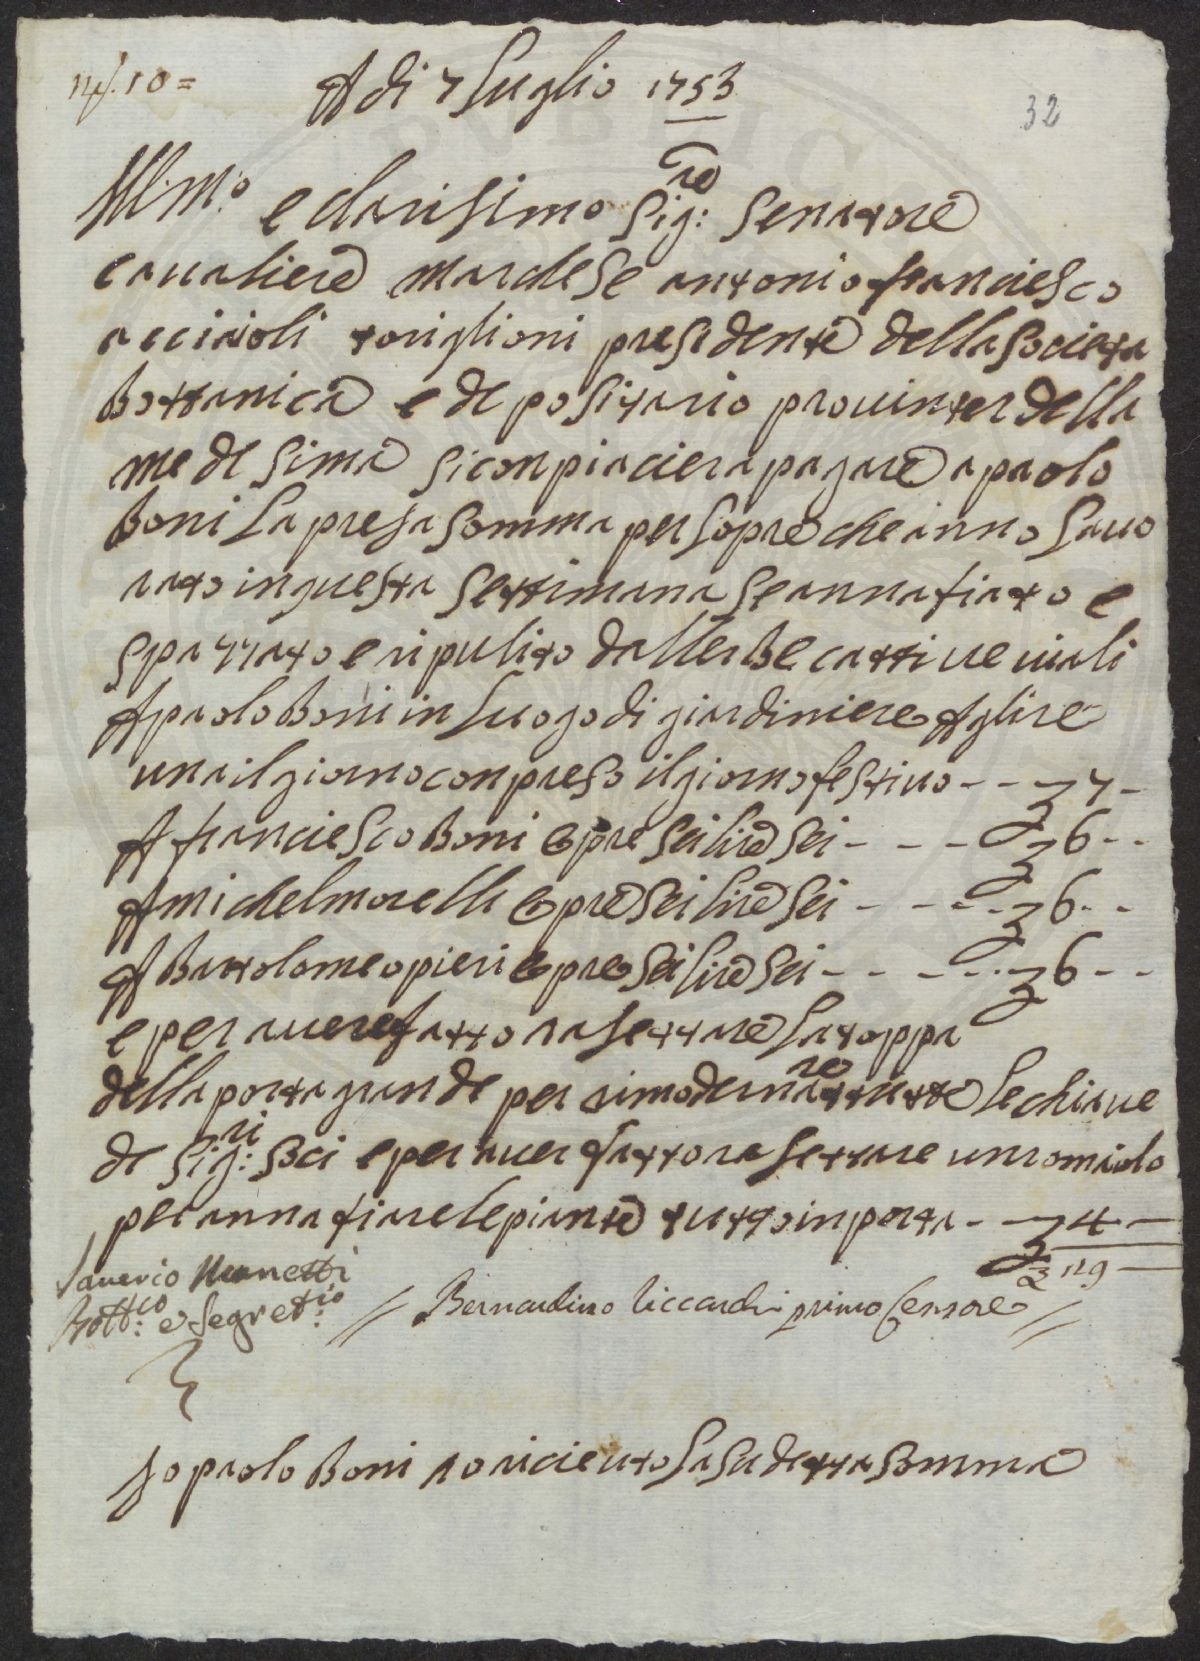 N.° 10 =
A di 7 Luglio 1753
32
Ill:mo e clarisimo Sig:re Senatore
cavaliere marchese antonio franciesco
acciaioli toriglioni presidente della societa
Bottanica e depositario provinter della
medesima si conpiaciera pagare a paolo
Boni la presa somma per lopre che anno lavo
rato in questa settimana se annafiato e
spazzato e ripulito dallerbe cattive viali
A paolo Boni in luogo di giardiniere A lire
una il giorno conpreso il giorno festivo - - 7 -
A franciesco Boni opre sei lire sei - - - 6 - -
A michel morelli opre sei lire sei - - - 6 - -
A Bartolomeo pieri opre sei lire sei - - - 6 - -
e per avere fatto rasettare la toppa
della porta grande per rimodernare tutte le chiave
de Sig:ri soci e per aver fatto rasettare un romaiolo
per annafiare le piante tutto inporta - 4 -
29 -
Saverio Manetti
Bott:co e Segret:io // Bernardino Riccardi primo Censore //
Jo paolo Boni o riceuto la sudetta somma